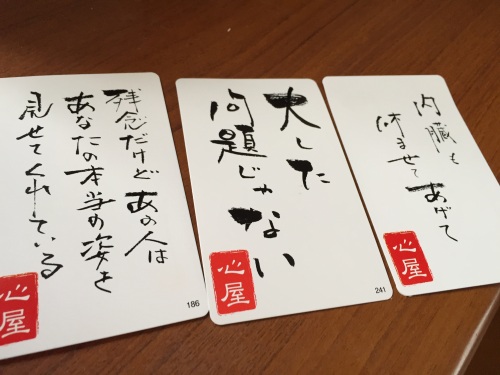 残念だけど あの人は
あなたの本当の姿を
見せてくれている
心屋
186
大した
問題じゃない
心屋
241
内臓も
休ませて
あげて
心屋